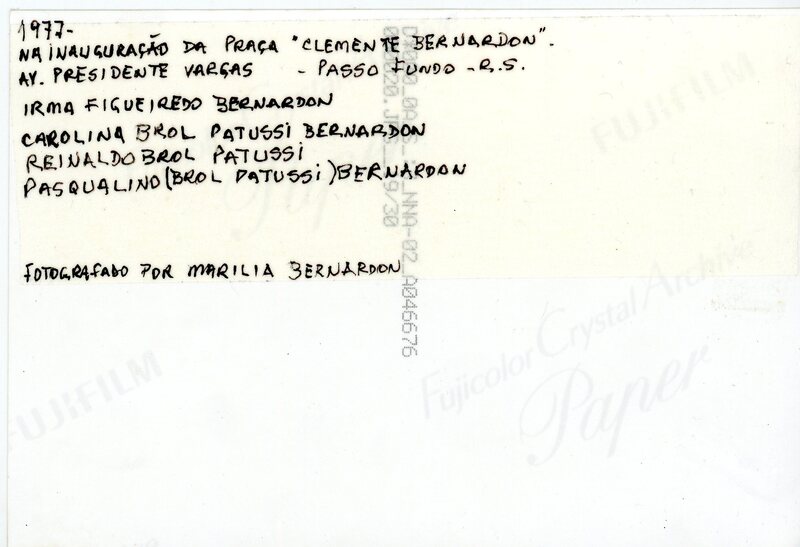 1977-
NA INAUGURAÇÃO DA PRAÇA "CLEMENTE BERNARDON".
AV. PRESIDENTE VARGAS - PASSO FUNDO - R.S.
IRMA FIGUEIREDO BERNARDON
CAROLINA BROL PATUSSI BERNARDON
REINALDO BROL PATUSSI
PASQUALINO (BROL PATUSSI) BERNARDON
FOTOGRAFADO POR MARILIA BERNARDON
FUJIFILM
FUJIFILM
Fujicolor Crystal Archive
Paper
Paper
NNA-02 A046676